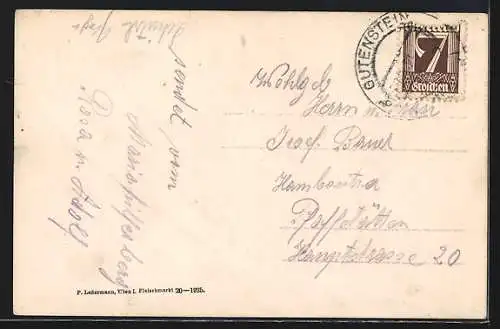 GUTENSTEIN
7
Groschen
Wohlgeb
Herrn
Josef Bauer
Pfaffstätten
Hauptstrasse 20
sendet vom
Mariahilferberg
Rosa u. Adolf
P. Ledermann, Wien I. Fleischmarkt 20—1925.